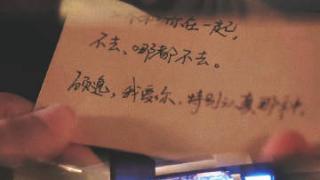 你在一起,
不去、哪都不去。
顾逸,我爱你,特别认真那种。